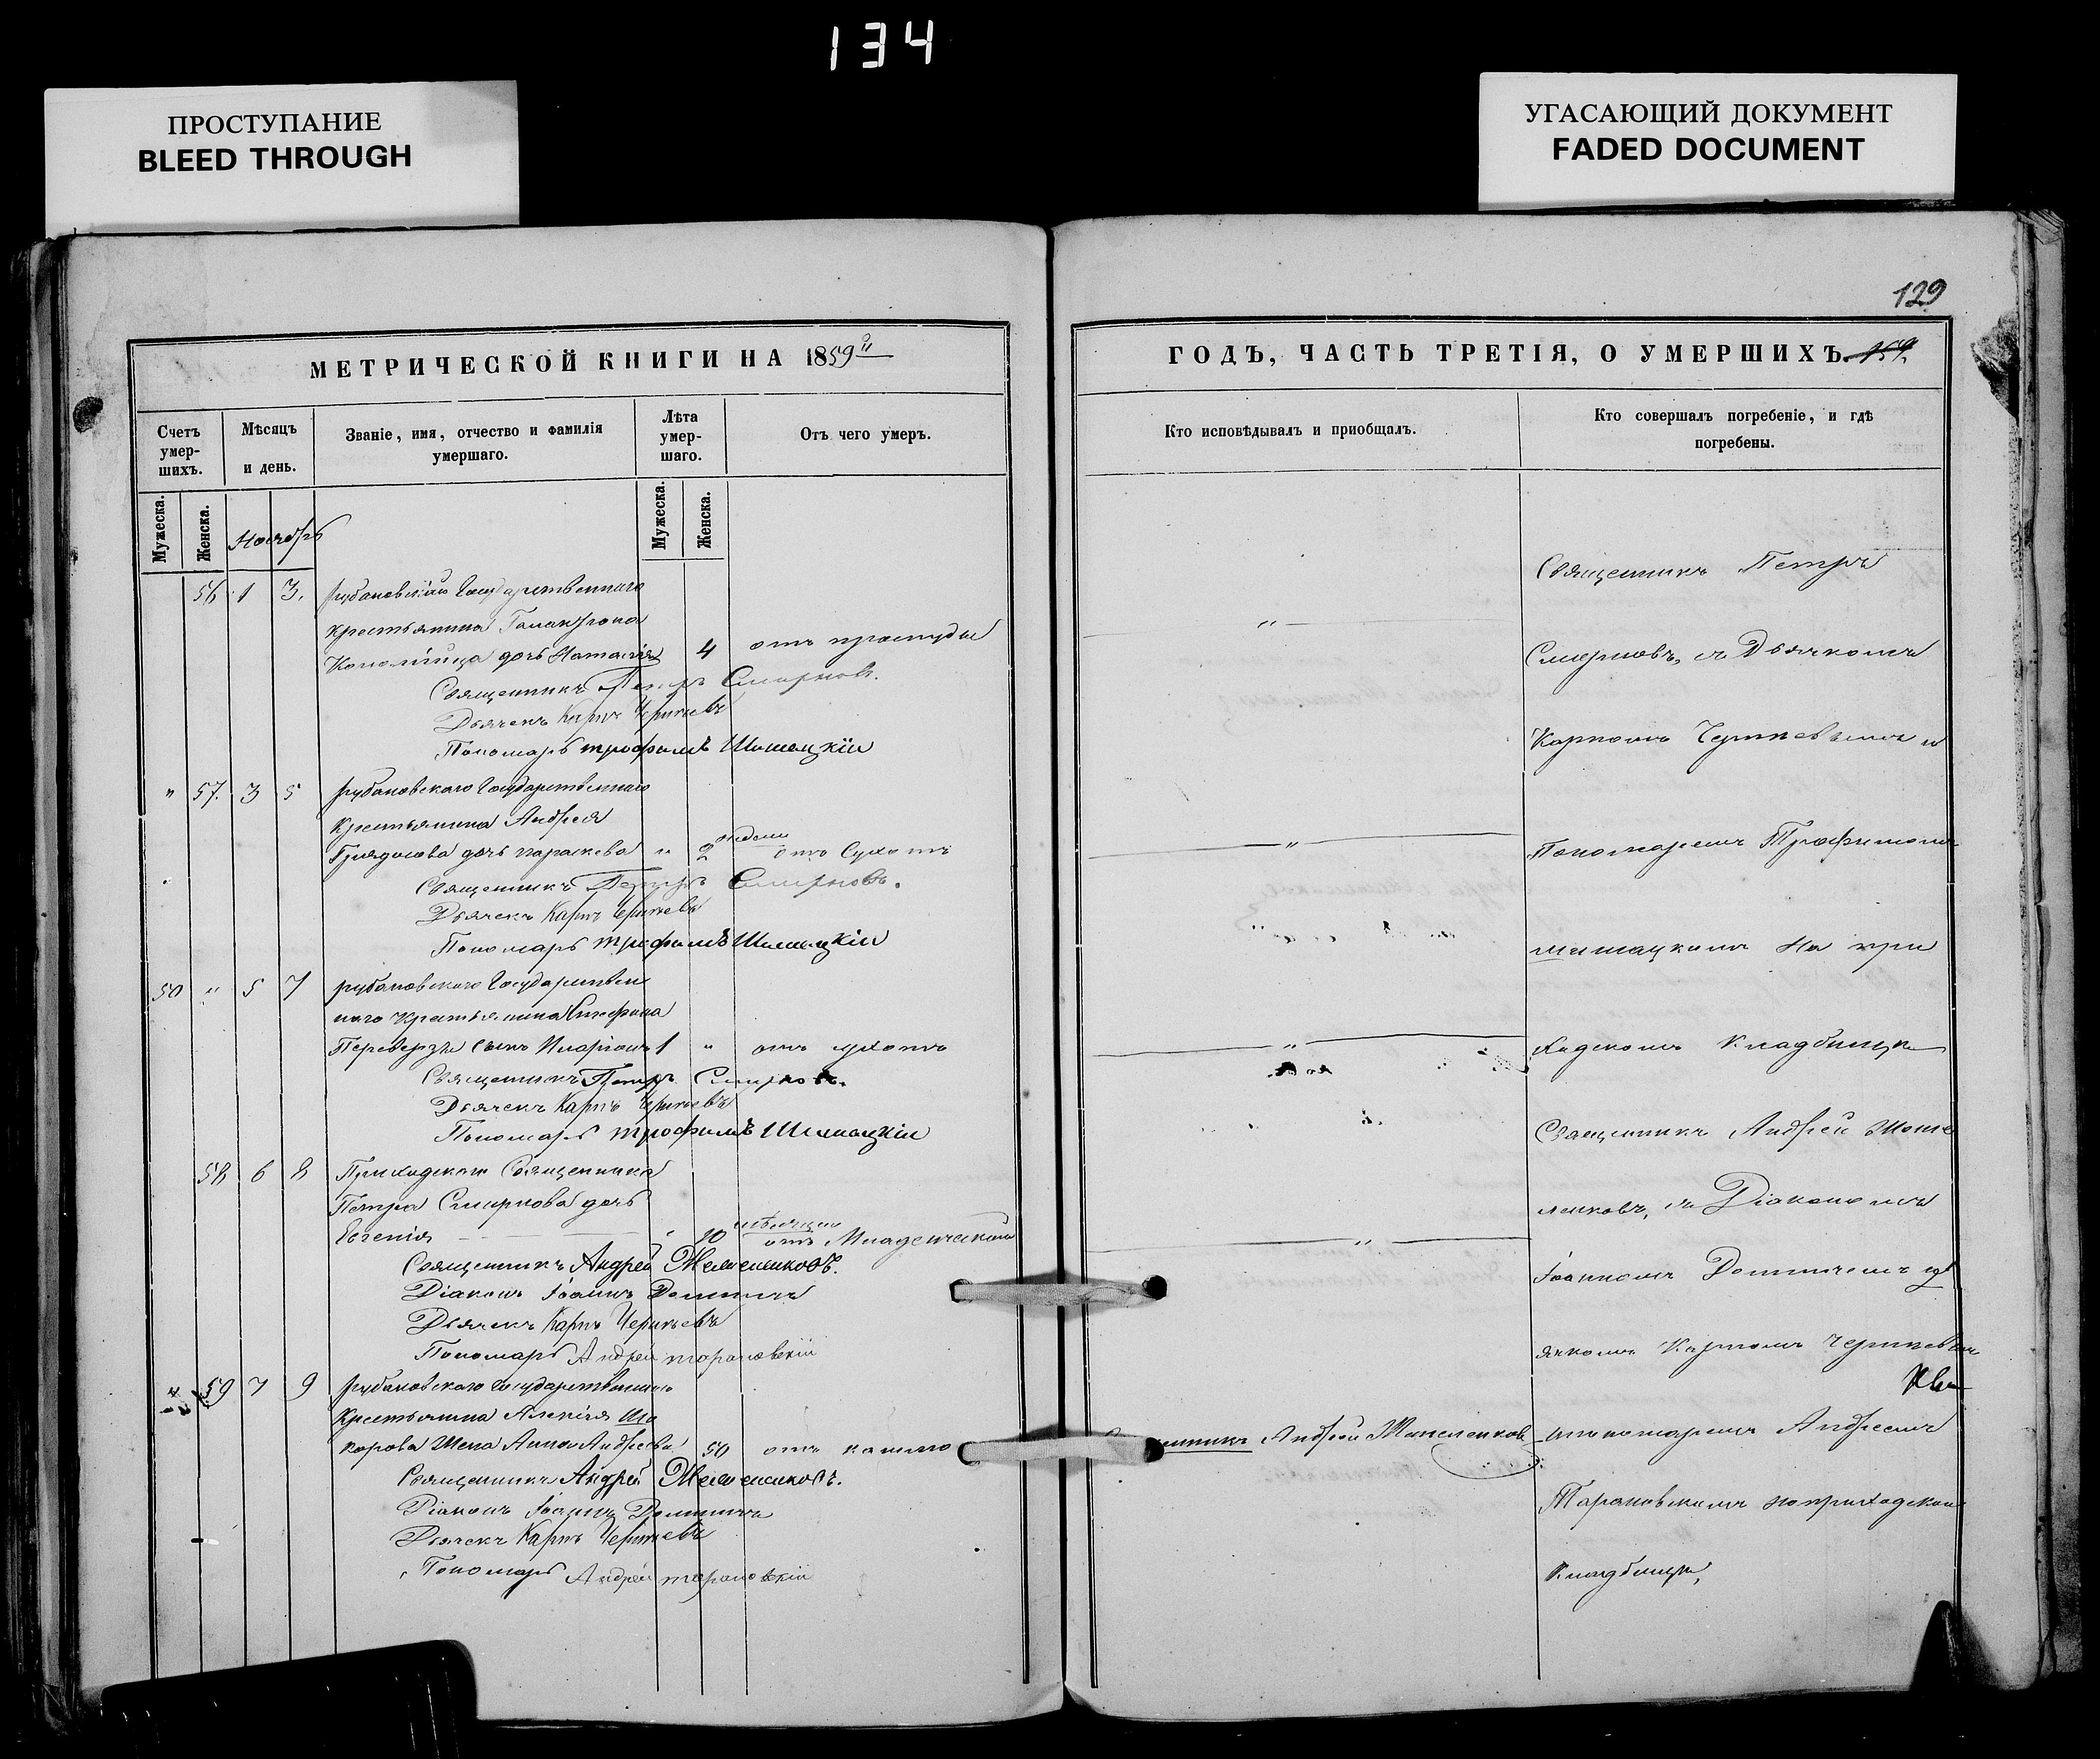 134
ПРОСТУПАНИЕ
BLEED THROUGH
УГАСАЮЩИЙ ДОКУМЕНТ
FADED DOCUMENT
129
МЕТРИЧЕСКОЙ КНИГИ НА 1859й
Счетъ умершихъ.
Мѣсяцъ и день.
Званіе, имя, отчество и фамилія умершаго.
Лѣта умершаго.
Отъ чего умеръ.
Мужеска.
Женска.
Ноябрь
Мужеска.
Женска.
56 1 3. рубановскаго Государственнаго
крестьянина
дочь Наталія 4 отъ простуды
Священникъ Петръ Смирновъ.
Дьячекъ Карпъ Черикевъ
Пономарь трофимъ Шимацкiи
" 57. 3 5 рубановскаго Государственнаго
Крестьянина Андрея
дочь параскева " 2 недели отъ Сухотъ
Священникъ Петръ Смирновъ.
Дьячекъ Карпъ Черикевъ
Пономарь трофимъ Шимацкiи
50 " 5 7 рубановскаго Государствен
наго крестьянина Стефана
Переверзы сынъ Иларіонъ 1 " отъ сухотъ
Священникъ Петръ Смирновъ.
Дьячекъ Карпъ Черикевъ
Пономарь трофимъ Шимацкiи
58 6 8 Приходскаго Священника
Петра Смирнова дочь
Евгенія 10 мѣсяцей отъ Младенческой
Священникъ Андрей
Діаконъ Іоаннъ
Дьячекъ Карпъ Черикевъ
Пономарь Андрей тарановскiи
" 59 7 9 рубановскаго Государственнаго
Крестьянина Алексѣя Ша
карова Жена Анна Андреева 50 отъ кашлю
Священникъ Андрей
Діаконъ Іоаннъ
Дьячекъ Карпъ Черикевъ
Пономарь Андрей тарановскiи
ГОДЪ, ЧАСТЬ ТРЕТІЯ, О УМЕРШИХЪ.
Кто исповѣдывалъ и приобщалъ.
Кто совершалъ погребеніе, и гдѣ погребены.
Священникъ Петръ
"
Смирновъ, съ Дьячкомъ
Карпомъ Черикевымъ и
"
Пономаремъ Трофимомъ
Шимацкимъ На при
"
ходскомъ Кладбищѣ
Священникъ Андрей
съ Діакономъ
"
Іоанномъ
ячкомъ Карпомъ Черикевымъ
Андрей
и пономаремъ Андреемъ
Тарановскимъ на приходскомъ
Кладбищѣ,